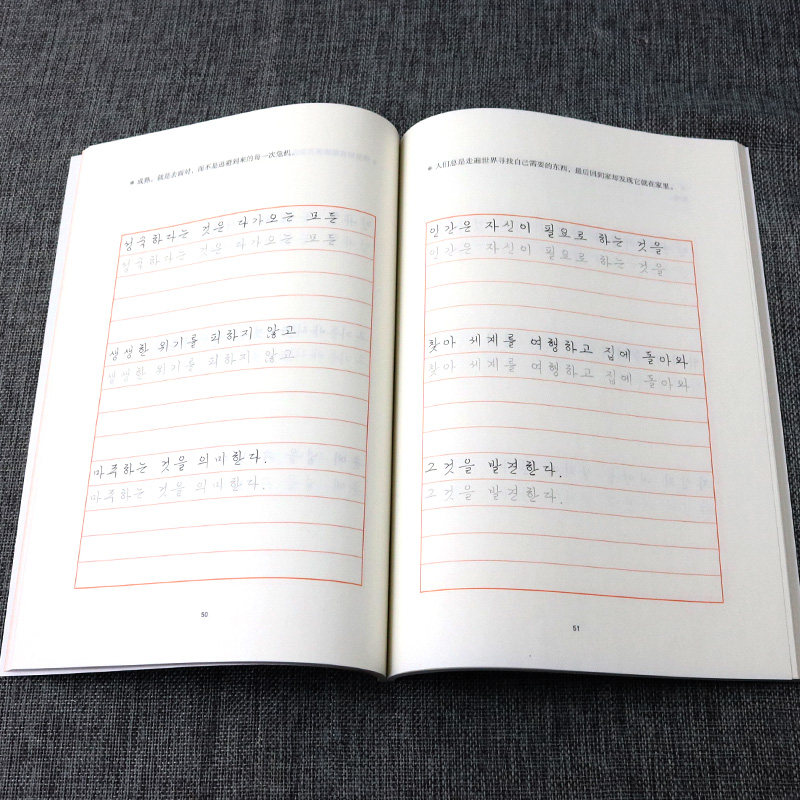 成熟，就是去面对，而不是逃避到来的每一次危机。
성숙하다는 것은 다가오는 모든
성숙하다는 것은 다가오는 모든
생생한 위기를 피하지 않고
생생한 위기를 피하지 않고
마주하는 것을 의미한다.
마주하는 것을 의미한다.
50
人们总是走遍世界寻找自己需要的东西，最后回到家却发现它就在家里。
인간은 자신이 필요로 하는 것을
인간은 자신이 필요로 하는 것을
찾아 세계를 여행하고 집에 돌아와
찾아 세계를 여행하고 집에 돌아와
그것을 발견한다.
그것을 발견한다.
51